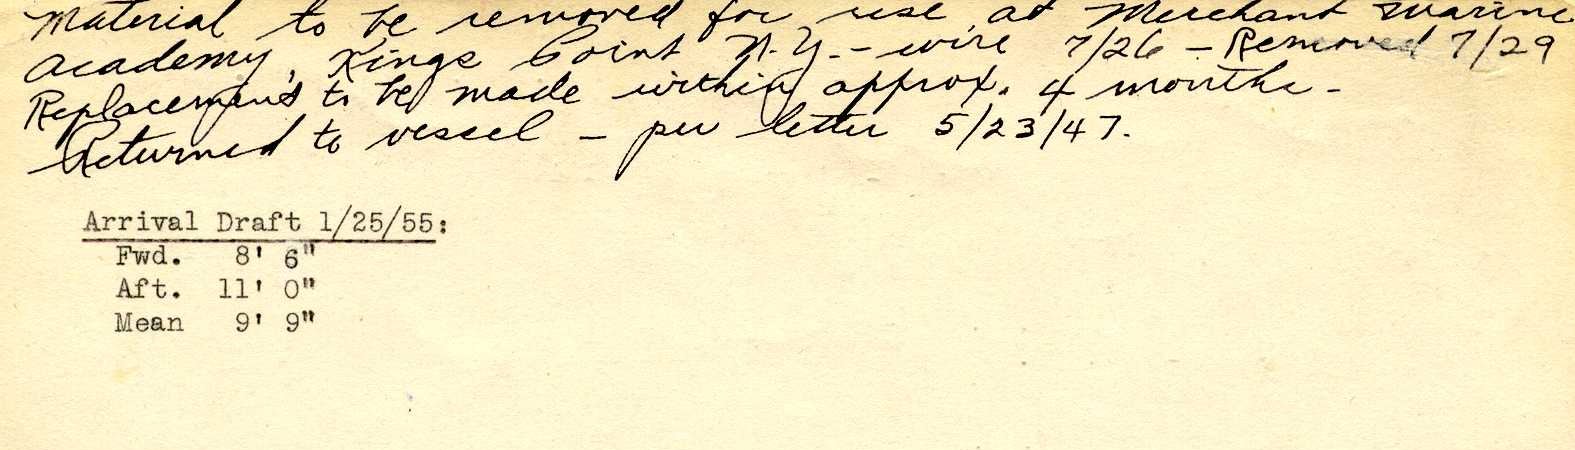 Material to be removed for use at Merchant Marine
Academy, Kings Point N.Y. - wire 7/26 - Removed 7/29
Replacement to be made within approx. 4 months -
Returned to vessel - per letter 5/23/47.
Arrival Draft 1/25/55:
Fwd. 8' 6"
Aft. 11' 0"
Mean 9' 9"